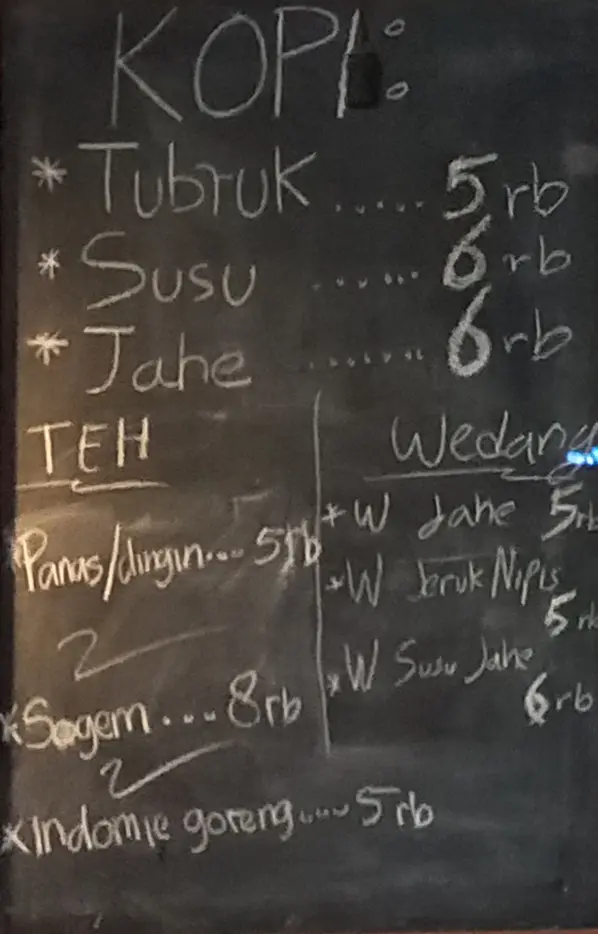 KOPI:
* Tubruk ...... 5 rb
* Susu ...... 6 rb
* Jahe ........ 6 rb
TEH
Panas/dingin.... 5 rb
*Sogem .... 8 rb
*Indomie goreng.... 5 rb
Wedang
*W Jahe 5 rb
*W Jeruk Nipis
5 rb
*W Susu Jahe
6 rb